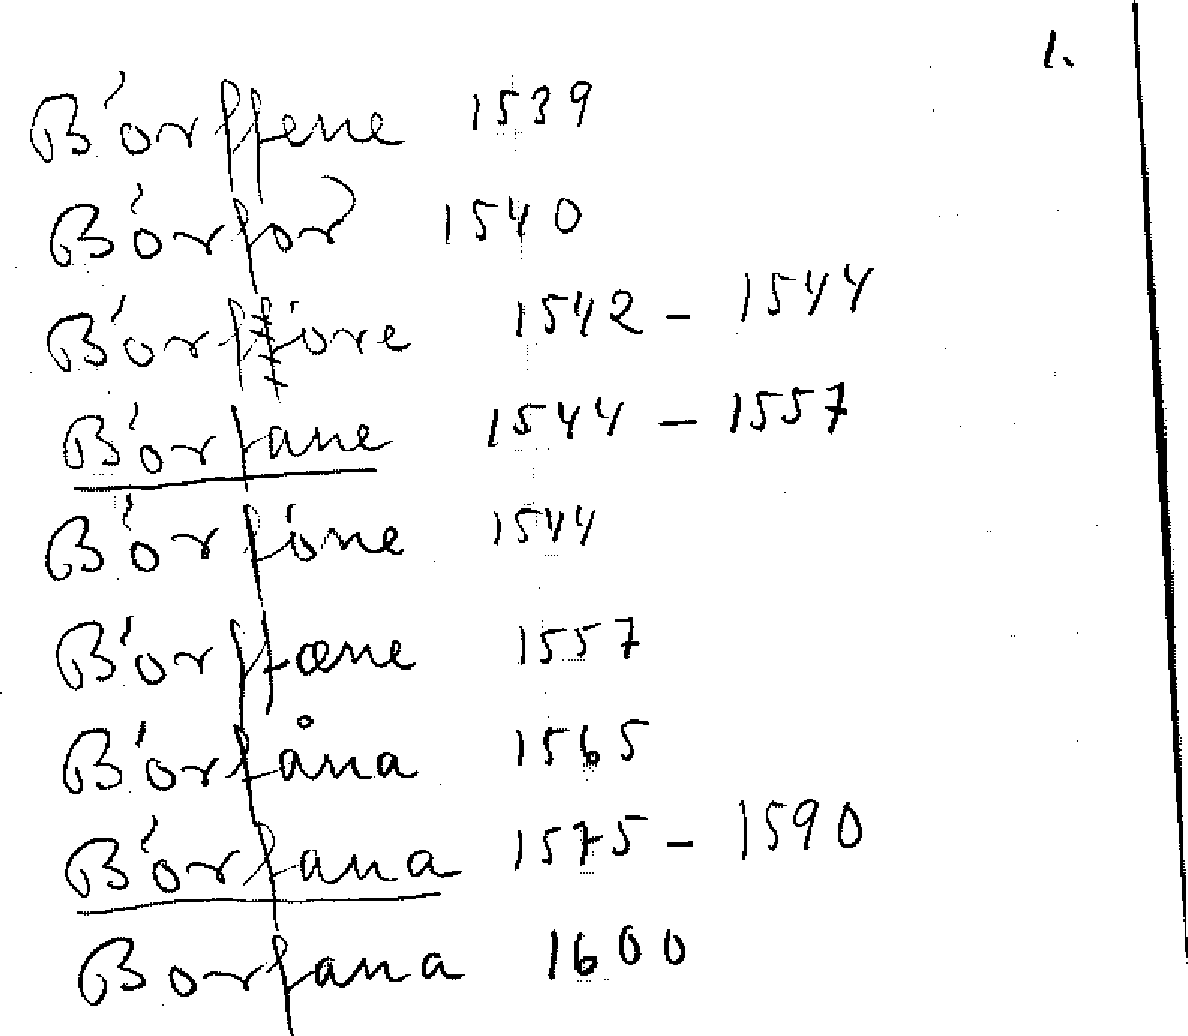 1.
Bórffene 1539
Bórfor 1540
Bórffióre 1542 – 1544
Bórfane 1544 – 1557
Bórfóne 1544
Bórffæne 1557
Bórfåna 1565
Bórfana 1575 – 1590
Borfana 1600